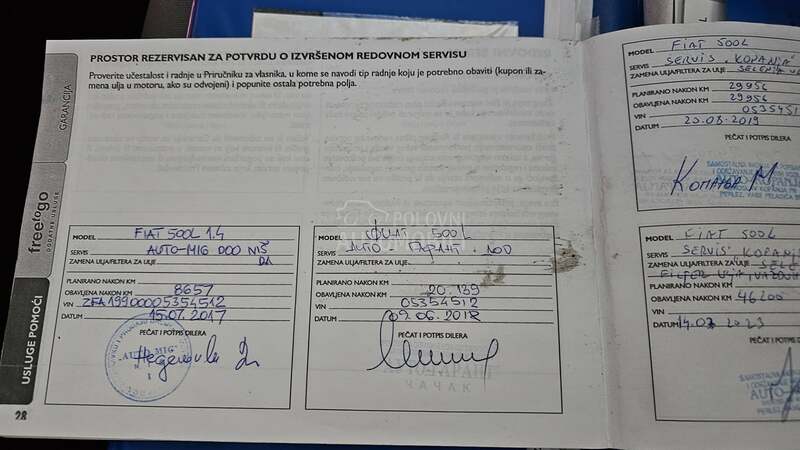 PROSTOR REZERVISAN ZA POTVRDU O IZVRŠENOM REDOVNOM SERVISU
Proverite učestalost i radnje u Priručniku za vlasnika, u kome se navodi tip radnje koju je potrebno obaviti (kupon ili za-
mena ulja u motoru, ako su odvojeni) i popunite ostala potrebna polja.
GARANCIJA
freetogo
DODATNE USLUGE
USLUGE POMOĆI
28
MODEL FIAT 500L 1.4
SERVIS AUTO-MIG DOO NIŠ
ZAMENA ULJA/FILTERA ZA ULJE DA
PLANIRANO NAKON KM
OBAVLJENA NAKON KM 8657
VIN ZFA19900005354512
DATUM 15.07.2017
PEČAT I POTPIS DILERA
POLOVNI
AUTOMOBILI
MODEL ФИАТ 500L
SERVIS АУТО ГАРАНТ
ZAMENA ULJA/FILTERA ZA ULJE
PLANIRANO NAKON KM
OBAVLJENA NAKON KM 20.139
VIN 05354512
DATUM 09.06.2018
PEČAT I POTPIS DILERA
ЧАЧАК
MODEL FIAT 500L
SERVIS SERVIS "KOPANJA"
ZAMENA ULJA/FILTERA ZA ULJE
PLANIRANO NAKON KM 29956
OBAVLJENA NAKON KM 29956
VIN 0535451
DATUM 20.08.2019
PEČAT I POTPIS DILERA
MODEL FIAT 500L
SERVIS SERVIS KOPANJ
ZAMENA ULJA/FILTERA ZA ULJE
PLANIRANO NAKON KM
OBAVLJENA NAKON KM 46200
VIN
DATUM 14.07 2023
PEČAT I POTPIS